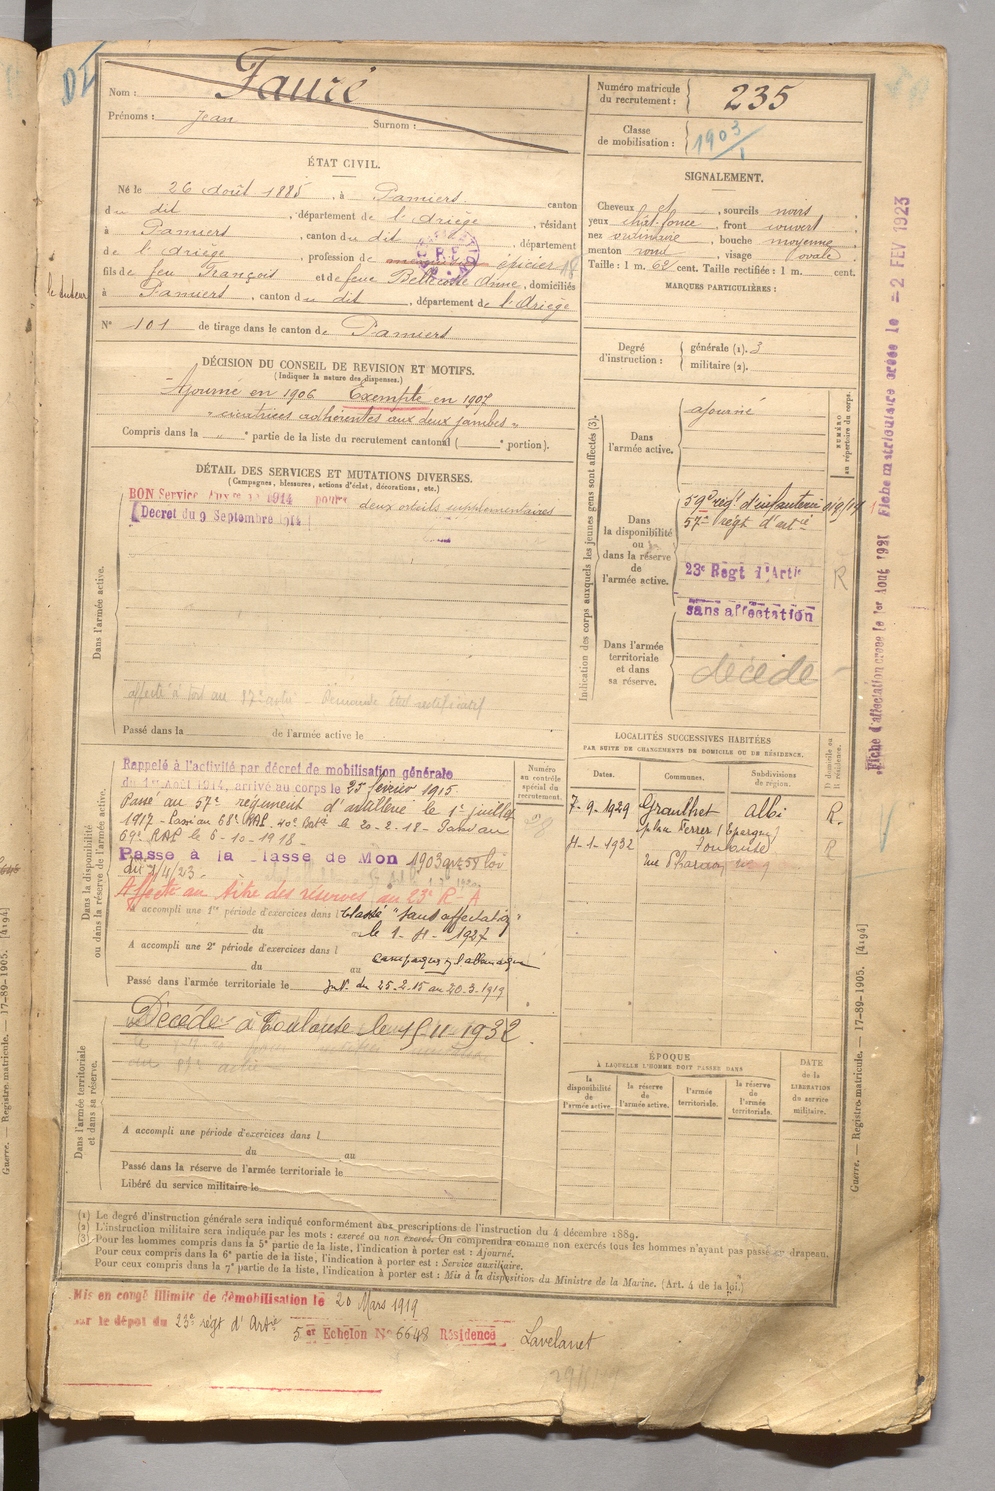 DI
Nom : Fauré
Prénoms : Jean Surnom :
ÉTAT CIVIL.
Né le 26 Août 1885, à Pamiers canton
du dit, département de l'Ariège, résidant
à Pamiers, canton du dit, département
de l'Ariège, profession de épicier 18
fils de feu François et de feue Bellecoste Anne, domiciliés
à Pamiers, canton du dit, département de l'Ariège
N° 101 de tirage dans le canton de Pamiers
DÉCISION DU CONSEIL DE REVISION ET MOTIFS.
(Indiquer la nature des dispenses.)
Ajourné en 1906 Exempté en 1907
"cicatrices adhérentes aux deux jambes"
Compris dans la " e partie de la liste du recrutement cantonal ( e portion).
DÉTAIL DES SERVICES ET MUTATIONS DIVERSES.
(Campagnes, blessures, actions d'éclat, décorations, etc.)
BON Service 1914 pour deux orteils supplémentaires
(Décret du 9 Septembre 1914)
Dans l'armée active.
affecté à tort au 17e artie - Demande état rectificatif
Passé dans la de l'armée active le
Dans la disponibilité
ou dans la réserve de l'armée active.
Rappelé à l'activité par décret de mobilisation générale
du 1er Août 1914, arrivé au corps le 25 février 1915.
Passé au 57e régiment d'artillerie le 1er juillet
1917 - Passé au 68e RAP. 40e Bat le 20-2-18 - Passé au
69e RAP le 6-10-1918.
Passé à la Classe de Mon 1903 art 58 loi
du 1/4/23.
Affecté au titre des réserves au 23e R-A
A accompli une 1re période d'exercices dans l Classé "sans affectation"
du le 1-11-1927
A accompli une 2e période d'exercices dans l
campagne c/ l'allemagne
du au
Passé dans l'armée territoriale le Int. du 25-2-15 au 20-3-1919
Numéro
au contrôle
spécial du
recrutement.
Dans l'armée territoriale
et dans sa réserve.
Décédé à Toulouse le 15-11-1932.
A accompli une période d'exercices dans l
du au
Passé dans la réserve de l'armée territoriale le
Libéré du service militaire le
Numéro matricule
du recrutement : 235
Classe
de mobilisation : 1903/1
SIGNALEMENT.
Cheveux et, sourcils noirs
yeux chât. foncé, front couvert
nez ordinaire, bouche moyenne
menton rond, visage ovale
Taille : 1 m. 62 cent. Taille rectifiée : 1 m. cent.
MARQUES PARTICULIÈRES :
Degré
d'instruction :
générale (1). 3
militaire (2).
Indication des corps auxquels les jeunes gens sont affectés (3).
NUMÉRO
au répertoire du corps.
Dans
l'armée active.
ajourné
Dans
la disponibilité
ou
dans la réserve
de
l'armée active.
59e régt d'infanterie
57e régt d'artie
23e Regt d'Artie
R
sans affectation
Dans l'armée
territoriale
et dans
sa réserve.
décédé
LOCALITÉS SUCCESSIVES HABITÉES
PAR SUITE DE CHANGEMENTS DE DOMICILE OU DE RÉSIDENCE.
D domicile ou
R résidence.
Dates. Communes. Subdivisions
de région.
7-9-1929 Graulhet Albi R.
place Ferrer (Epargne)
11-1-1932 Toulouse R
ÉPOQUE
À LAQUELLE L'HOMME DOIT PASSER DANS
la
disponibilité
de
l'armée active.
la réserve
de
l'armée active.
l'armée
territoriale.
la réserve
de
l'armée
territoriale.
DATE
de la
LIBÉRATION
du service
militaire.
(1) Le degré d'instruction générale sera indiqué conformément aux prescriptions de l'instruction du 4 décembre 1889.
(2) L'instruction militaire sera indiquée par les mots : exercé ou non exercé. On comprendra comme non exercés tous les hommes n'ayant pas passé au drapeau.
(3) Pour les hommes compris dans la 5e partie de la liste, l'indication à porter est : Ajourné.
Pour ceux compris dans la 6e partie de la liste, l'indication à porter est : Service auxiliaire.
Pour ceux compris dans la 7e partie de la liste, l'indication à porter est : Mis à la disposition du Ministre de la Marine. (Art. 4 de la loi.)
Mis en congé illimité de démobilisation le 20 Mars 1919
par le dépôt du 23e régt d'Artie 5e Echelon N° 6648 Résidence Lavelanet
Fiche d'affectation créée le 1er Août 1921 Fiche matriculaire créée le - 2 FEV 1923
Guerre. — Registre matricule. — 17-89-1905. [4194]
Guerre. — Registre matricule. — 17-89-1905. [4194]